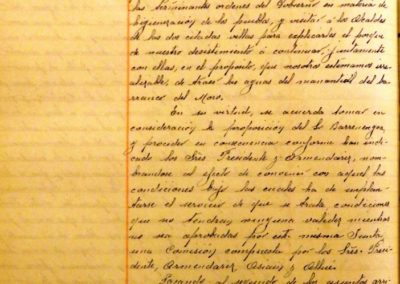 las terminantes ordenes del Gobierno en materia de
regeneración de los pueblos, y visitar á los Alcaldes
de las dos citadas villas para explicarles el porque
de nuestro desistimiento á continuar, juntamente
con ellas, en el propósito, que nosotros estimamos
de traer las aguas del manantial del ba-
rranco del Moro.
En su virtud, se acuerda tomar en
consideración la proposición del Sr Barrenengoa,
y proceder en consecuencia conforme han indi-
cado los Sres Presidente y Armendariz, nom-
brandose al efecto de convenir con aquel las
condiciones bajo las cuales ha de implan-
tarse el servicio de que se trata, condiciones
que no tendran ninguna validez mientras
no sea aprobadas por esta misma Junta,
una Comisión compuesta por los Sres. Presi-
dente, Armendariz, y
Pasando al segundo de los asuntos